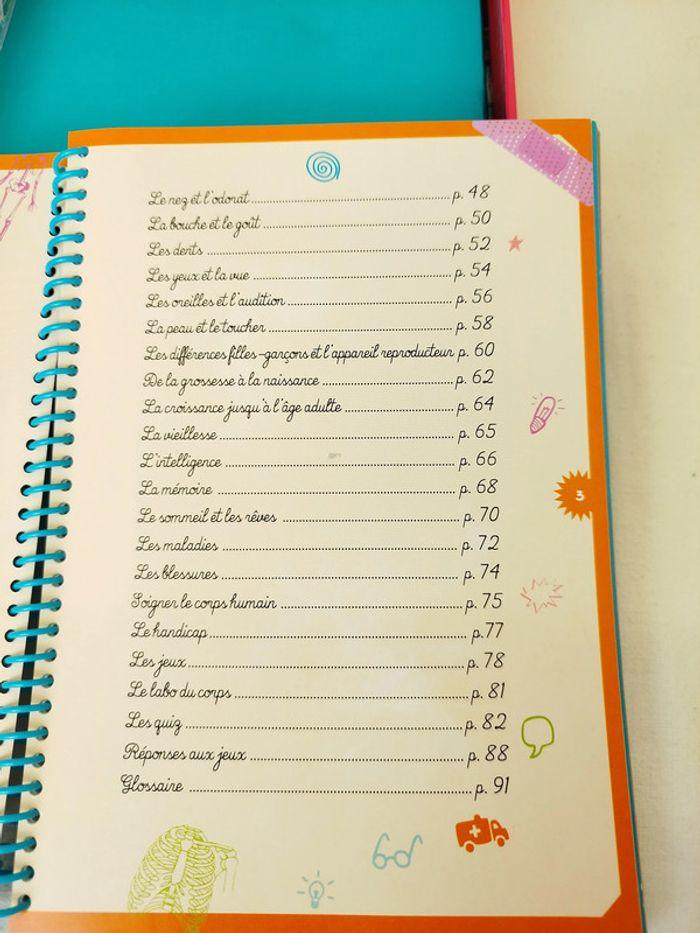 Le nez et l'odorat ........ p. 48
La bouche et le goût ........ p. 50
Les dents ........ p. 52
Les yeux et la vue ........ p. 54
Les oreilles et l'audition ........ p. 56
La peau et le toucher ........ p. 58
Les différences filles-garçons et l'appareil reproducteur p. 60
De la grossesse à la naissance ........ p. 62
La croissance jusqu'à l'âge adulte ........ p. 64
La vieillesse ........ p. 65
L'intelligence ........ p. 66
La mémoire ........ p. 68
3
Le sommeil et les rêves ........ p. 70
Les maladies ........ p. 72
Les blessures ........ p. 74
Soigner le corps humain ........ p. 75
Le handicap ........ p. 77
Les jeux ........ p. 78
Le labo du corps ........ p. 81
Les quiz ........ p. 82
Réponses aux jeux ........ p. 88
Glossaire ........ p. 91